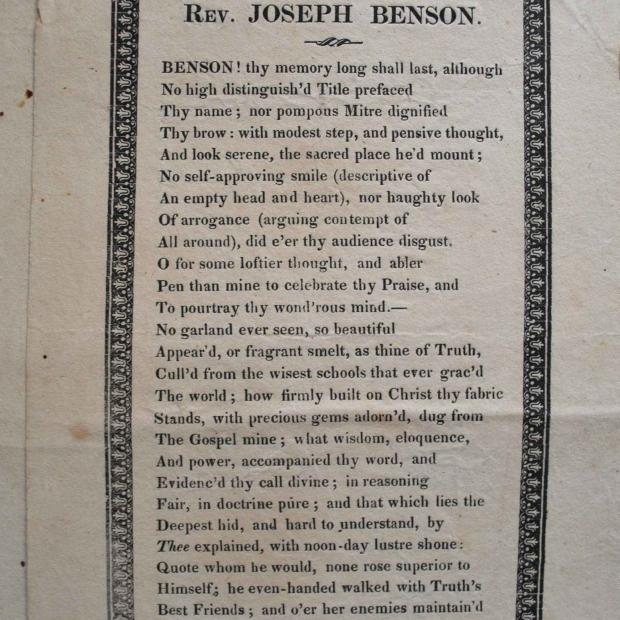 Rev. JOSEPH BENSON.
BENSON! thy memory long shall last, although
No high distinguish'd Title prefaced
Thy name; nor pompous Mitre dignified
Thy brow: with modest step, and pensive thought,
And look serene, the sacred place he'd mount;
No self-approving smile (descriptive of
An empty head and heart), nor haughty look
Of arrogance (arguing contempt of
All around), did e'er thy audience disgust.
O for some loftier thought, and abler
Pen than mine to celebrate thy Praise, and
To pourtray thy wond'rous mind.—
No garland ever seen, so beautiful
Appear'd, or fragrant smelt, as thine of Truth,
Cull'd from the wisest schools that ever grac'd
The world; how firmly built on Christ thy fabric
Stands, with precious gems adorn'd, dug from
The Gospel mine; what wisdom, eloquence,
And power, accompanied thy word, and
Evidenc'd thy call divine; in reasoning
Fair, in doctrine pure; and that which lies the
Deepest hid, and hard to understand, by
Thee explained, with noon-day lustre shone:
Quote whom he would, none rose superior to
Himself; he even-handed walked with Truth's
Best Friends; and o'er her enemies maintain'd